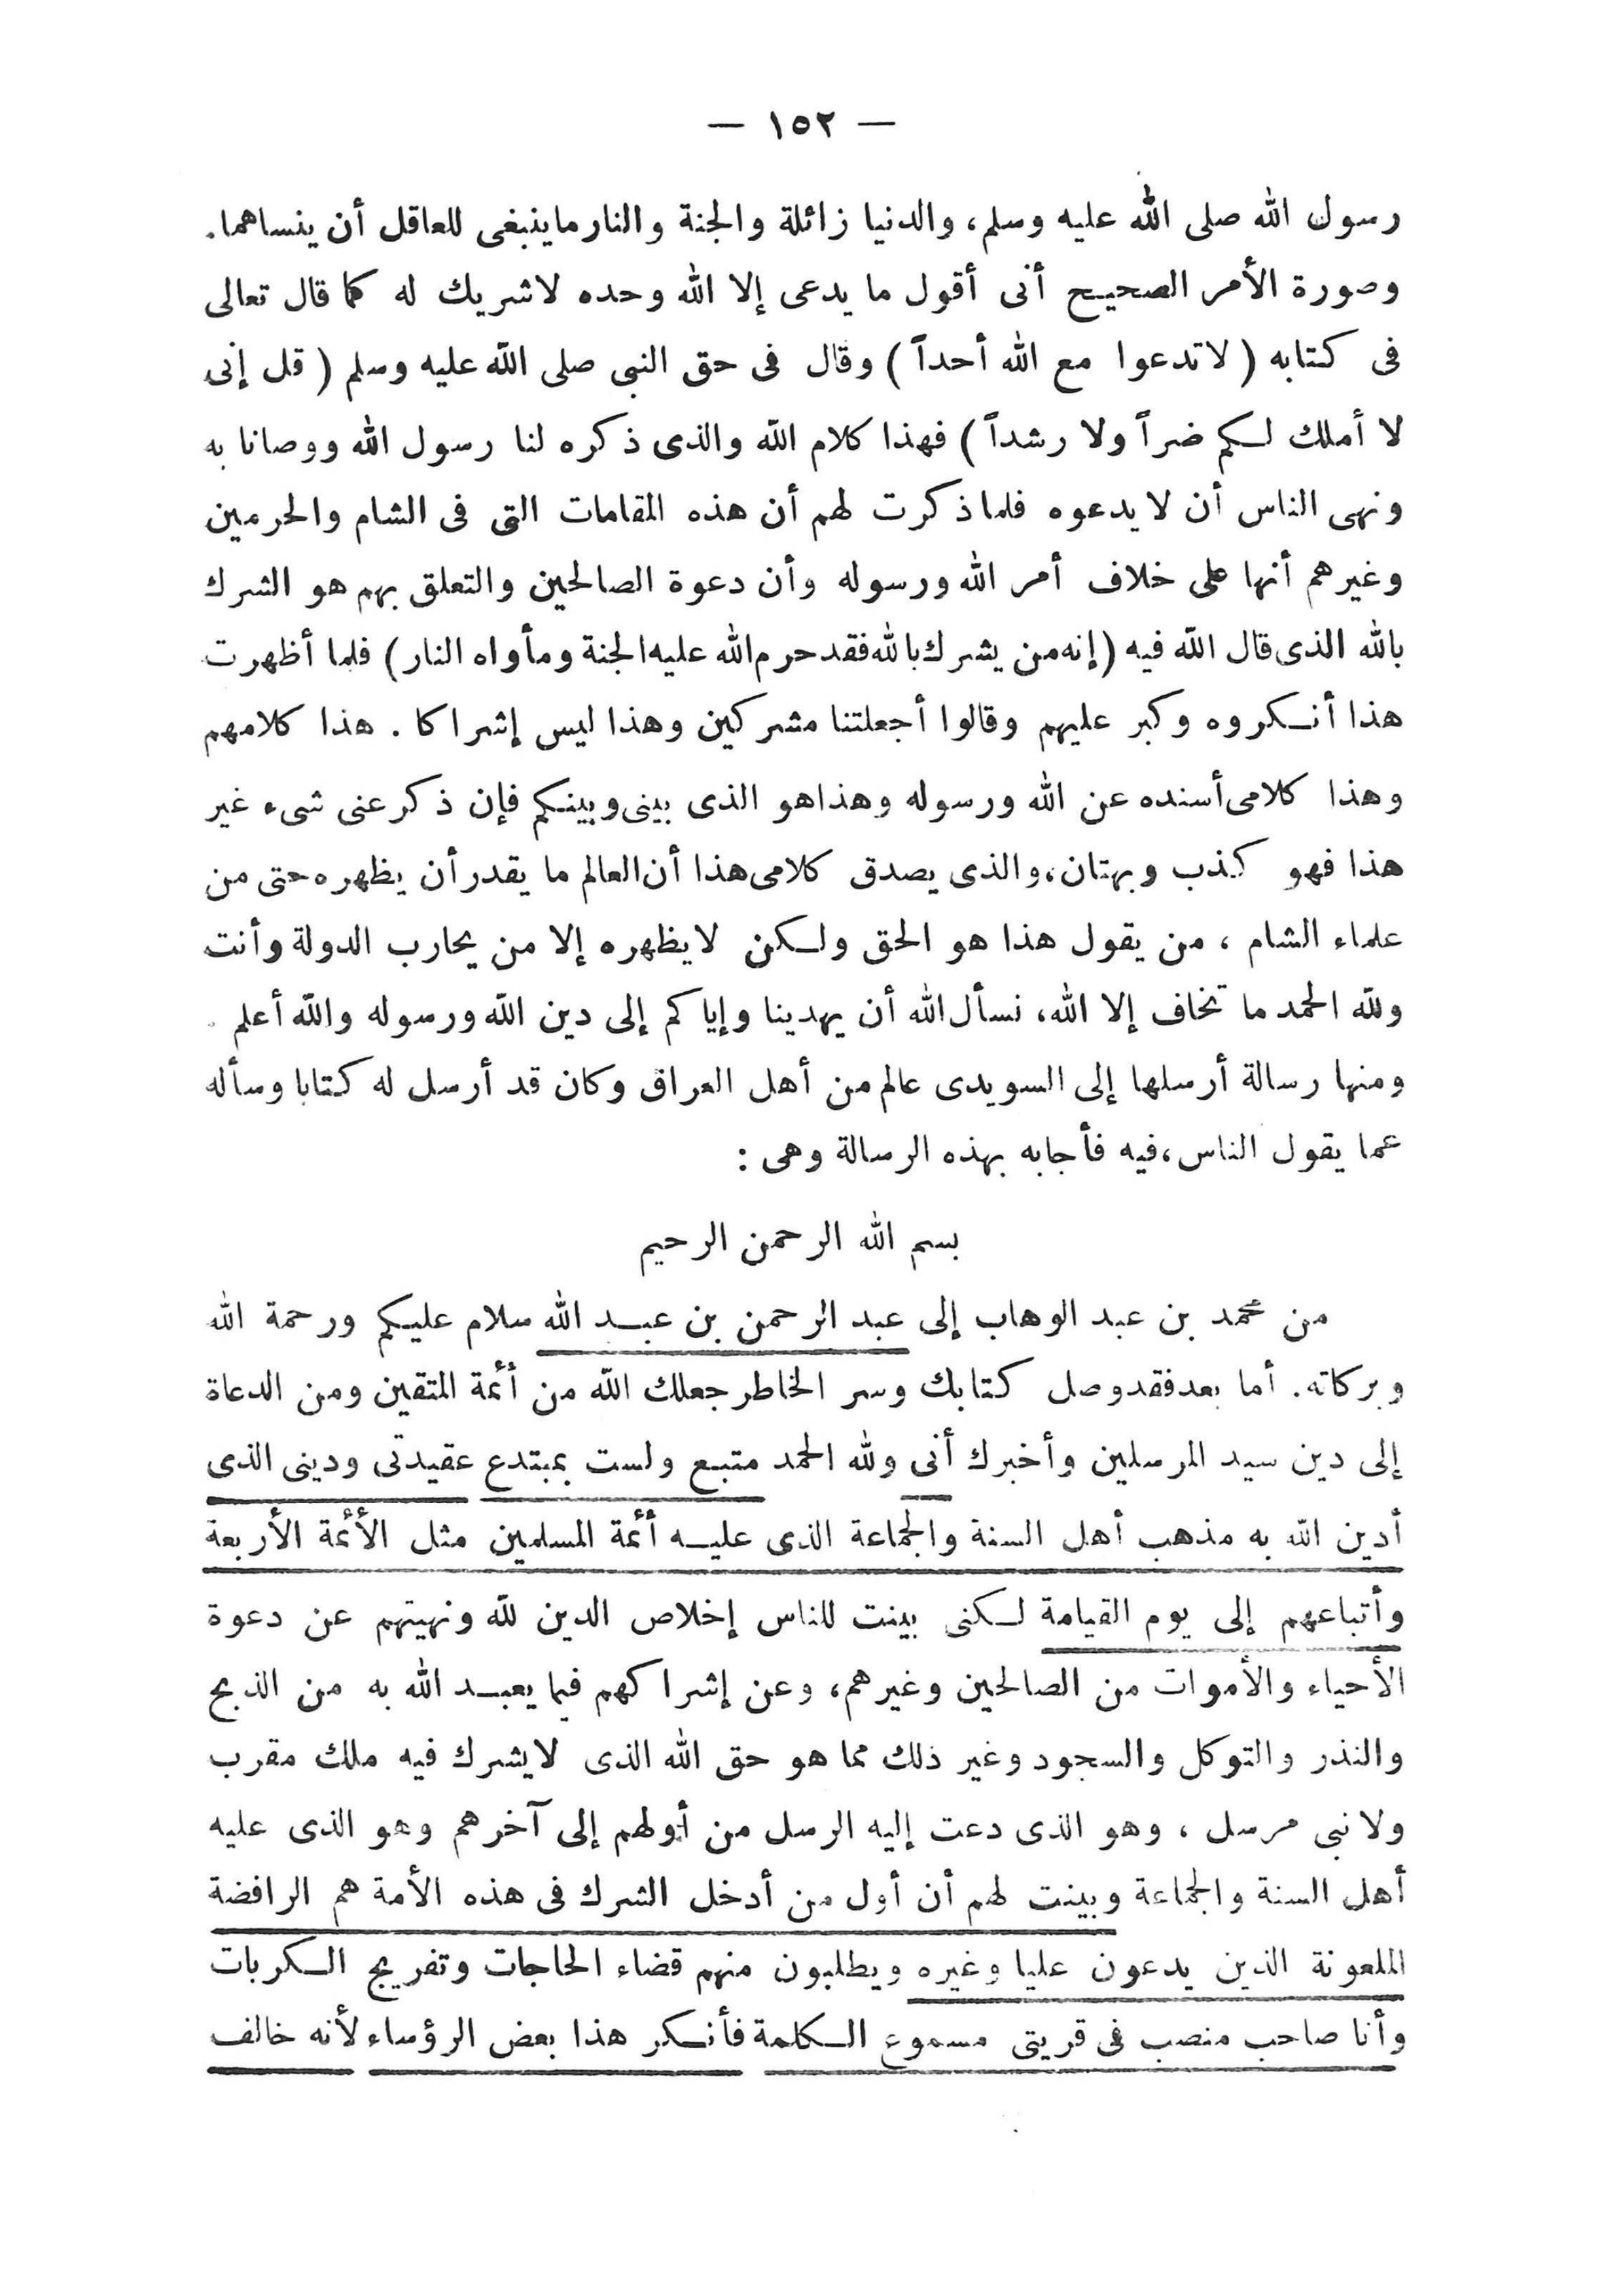 — ١٥٢ —
رسول الله صلى الله عليه وسلم، والدنيا زائلة والجنة والنار ماينبغى للعاقل أن ينساهما.
وصورة الأمر الصحيح أنى أقول ما يدعى إلا الله وحده لاشريك له كما قال تعالى
فى كتابه ( لاتدعوا مع الله أحداً ) وقال فى حق النبى صلى الله عليه وسلم ( قل إنى
لا أملك لكم ضراً ولا رشداً ) فهذا كلام الله والذى ذكره لنا رسول الله ووصانا به
ونهى الناس أن لايدعوه فلما ذكرت لهم أن هذه المقامات التى فى الشام والحرمين
وغيرهم أنها على خلاف أمر الله ورسوله وأن دعوة الصالحين والتعلق بهم هو الشرك
بالله الذى قال الله فيه (إنه من يشرك بالله فقد حرم الله عليه الجنة ومأواه النار) فلما أظهرت
هذا أنكروه وكبر عليهم وقالوا أجعلتنا مشركين وهذا ليس إشراكا . هذا كلامهم
وهذا كلامى أسنده عن الله ورسوله وهذا هو الذى بينى وبينكم فإن ذكر عنى شىء غير
هذا فهو كذب وبهتان، والذى يصدق كلامى هذا أن العالم ما يقدر أن يظهره حتى من
علماء الشام ، من يقول هذا هو الحق ولكن لايظهره إلا من يحارب الدولة وأنت
ولله الحمد ما تخاف إلا الله، نسأل الله أن يهدينا وإياكم إلى دين الله ورسوله والله أعلم .
ومنها رسالة أرسلها إلى السويدى عالم من أهل العراق وكان قد أرسل له كتابا وسأله
عما يقول الناس، فيه فأجابه بهذه الرسالة وهى :
بسم الله الرحمن الرحيم
من محمد بن عبد الوهاب إلى عبد الرحمن بن عبد الله سلام عليكم ورحمة الله
وبركاته. أما بعد فقد وصل كتابك وسر الخاطر جعلك الله من أئمة المتقين ومن الدعاة
إلى دين سيد المرسلين وأخبرك أنى ولله الحمد متبع ولست بمبتدع عقيدتى ودينى الذى
أدين الله به مذهب أهل السنة والجماعة الذى عليه أئمة المسلمين مثل الأئمة الأربعة
وأتباعهم إلى يوم القيامة لكنى بينت للناس إخلاص الدين لله ونهيتهم عن دعوة
الأحياء والأموات من الصالحين وغيرهم، وعن إشراكهم فيما يعبد الله به من الذبح
والنذر والتوكل والسجود وغير ذلك مما هو حق الله الذى لايشرك فيه ملك مقرب
ولا نبى مرسل ، وهو الذى دعت إليه الرسل من أولهم إلى آخرهم وهو الذى عليه
أهل السنة والجماعة وبينت لهم أن أول من أدخل الشرك فى هذه الأمة هم الرافضة
الملعونة الذين يدعون عليا وغيره ويطلبون منهم قضاء الحاجات وتفريج الكربات
وأنا صاحب منصب فى قريتى مسموع الكلمة فأنكر هذا بعض الرؤساء لأنه خالف